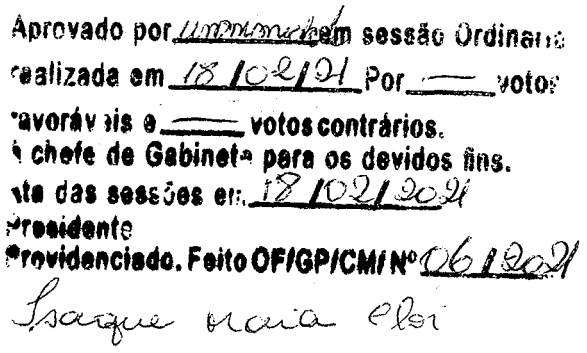 Aprovado por unanimidade em sessão Ordinaria
realizada em 18/02/21 Por — votos
favoráveis e — votos contrários.
A chefe de Gabinete para os devidos fins.
das sessões em 18/02/2021
Presidente
Providenciado. Feito OF/GP/CM/Nº 06/2021
Isaque Maia Eloi